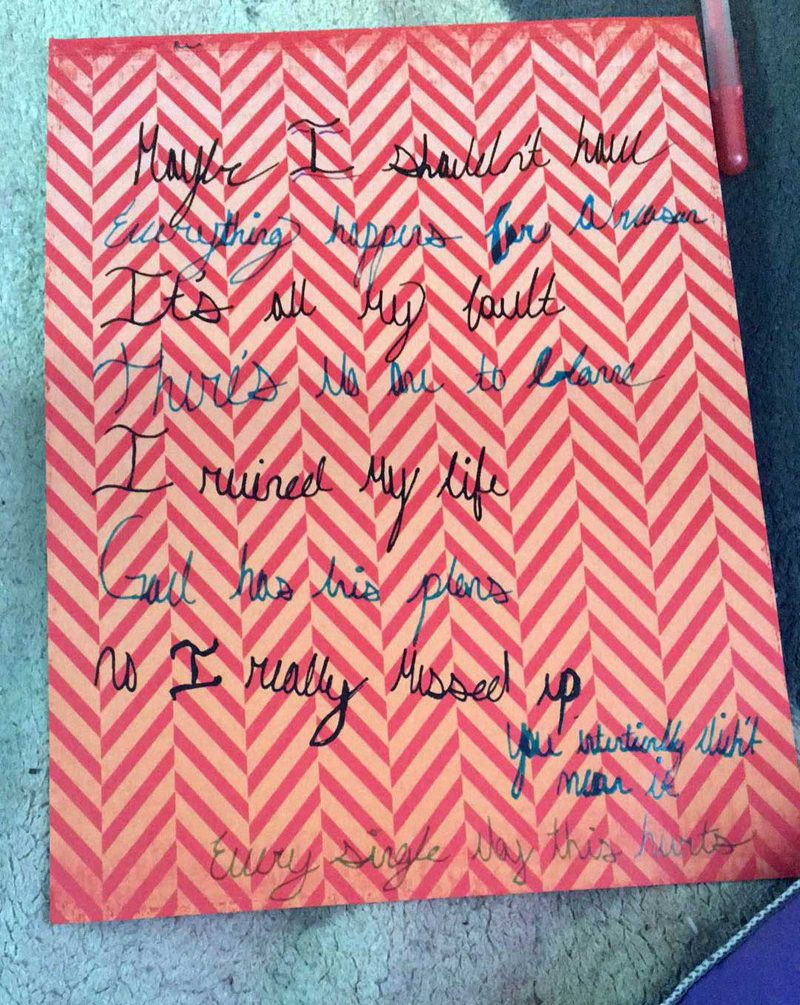 Maybe I shouldn't have
Everything happens for a reason
It's all my fault
There's no one to blame
I ruined my life
God has his plans
no I really messed up
you intentionally didn't
mean it
Every single day this hurts